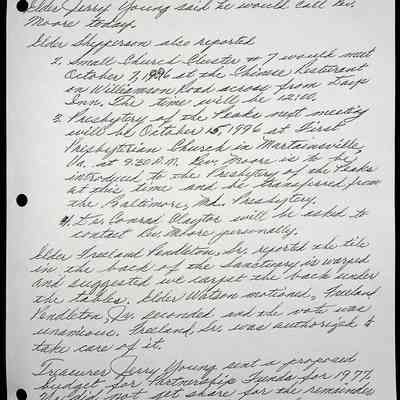 Elder Jerry Young said he would call Rev.
Moore today.
Elder Shepperson also reported
2. Small Church Cluster # 7 would meet
October 7, 1996 at the Chinese Resturant
on Williamson Road across from Days
Inn. The time will be 12:00.
3. Presbytery of the Peaks next meeting
will be October 15, 1996 at First
Presbyterian Church in Martinsville,
Va. at 9:30 A.M. Rev. Moore is to be
introduced to the Presbytery of the Peaks
at this time and be transferred from
the Baltimore, Md. Presbytery.
4. Conrad Claytor will be asked to
contact Rev. Moore personally.
Elder Freeland Pendleton, Sr. reported the tile
in the back of the Sanctuary is warped
and suggested we carpet the back under
the tables. Elder Watson motioned, Freeland
Pendleton Jr. seconded and the vote was
unanimous. Freeland, Sr. was authorized to
take care of it.
Treasurer Jerry Young sent a proposed
budget for Partnership Funds for 1977.
We did not get share for the remainder